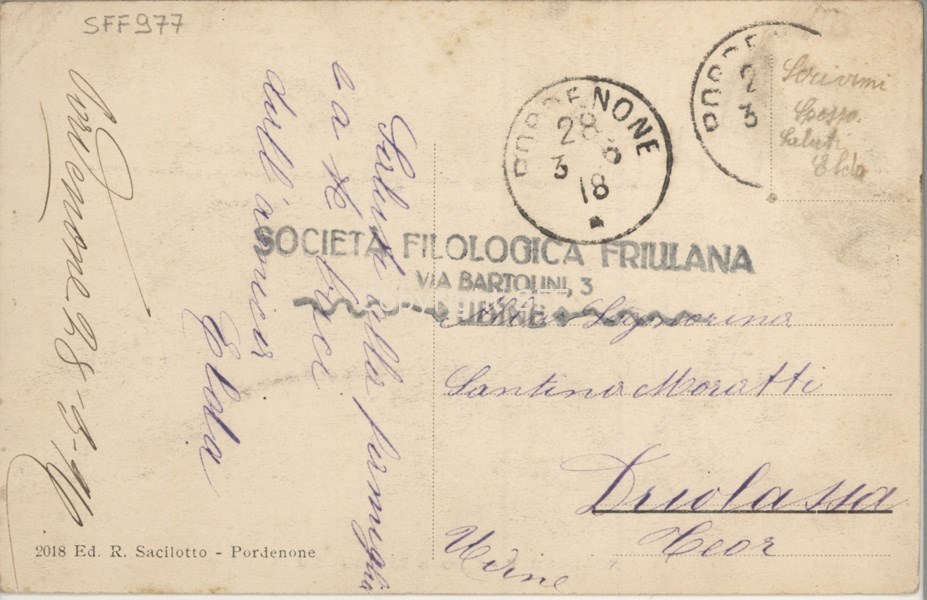 SFF977
Pordenone 28-3-
Saluti alla famiglia
e a te baci
dall'amica
Elda
PORDENONE
28 3
18
PORDE
2
3
Scrivimi
Spesso.
Saluti
Elda
SOCIETÀ FILOLOGICA FRIULANA
VIA BARTOLINI, 3
UDINE
Alla Signorina
Santina Moratti
Driolassa
Teor
Udine
2018 Ed. R. Sacilotto - Pordenone